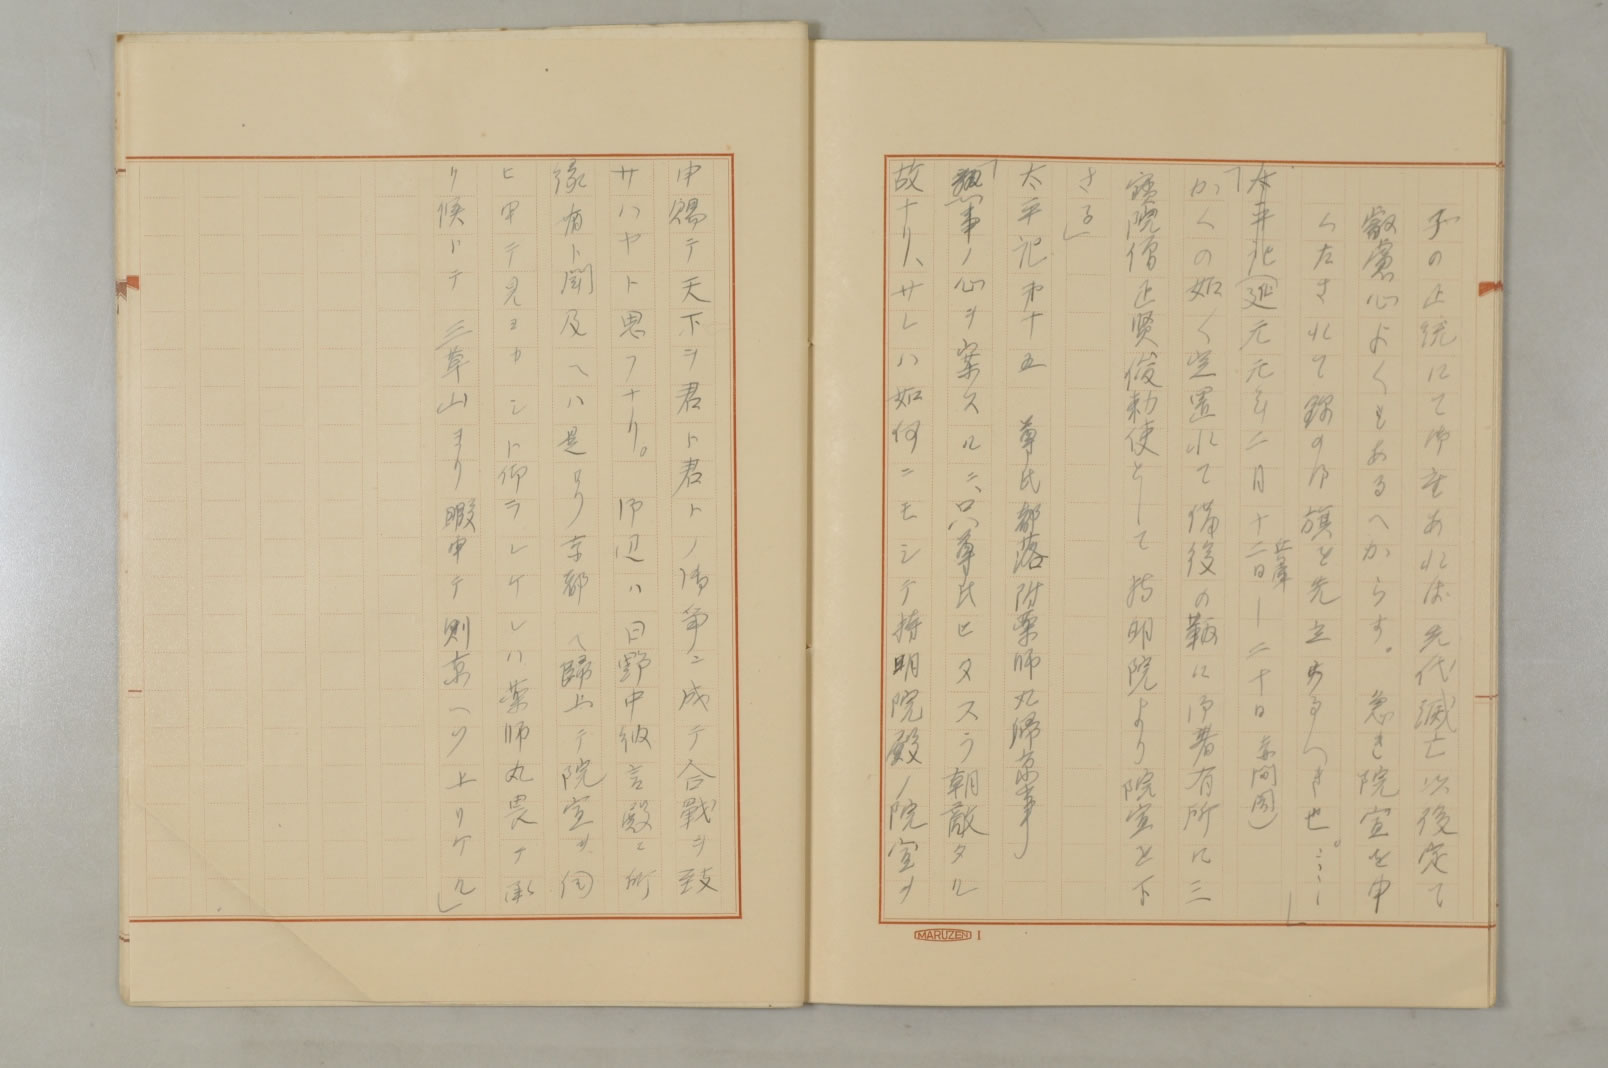 子の正統にて御座あれは先代滅亡以後定て
叡慮心よくもあるへからす。急き院宣を申
くたされて錦の御旗を先立らるへき也。……」
「太平記(延元元年二月十二日兵庫―二十日赤間関)
かくの如く定置れて備後の鞆に御着有所に三
宝院僧正賢俊勅使として持明院より院宣を下
さる」
太平記第十五　尊氏都落附薬師丸帰京事
「熟事ノ心ヲ案スルニ、只尊氏ヒタスラ朝敵タル
故ナリ、サレハ如何ニモシテ持明院殿ノ院宣ヲ
MARUZEN I
申賜テ天下ヲ君ト君トノ御争ニ成テ合戰ヲ致
サハヤト思フナリ。御辺ハ日野中納言殿ニ所
縁有ト聞及ヘハ是ヨリ京都ヘ歸上テ院宣ヲ伺
ヒ申テ見ヨカシト仰ラレケレハ薬師丸畏テ承
リ候トテ三草山ヨリ暇申テ則京ヘソ上リケル」